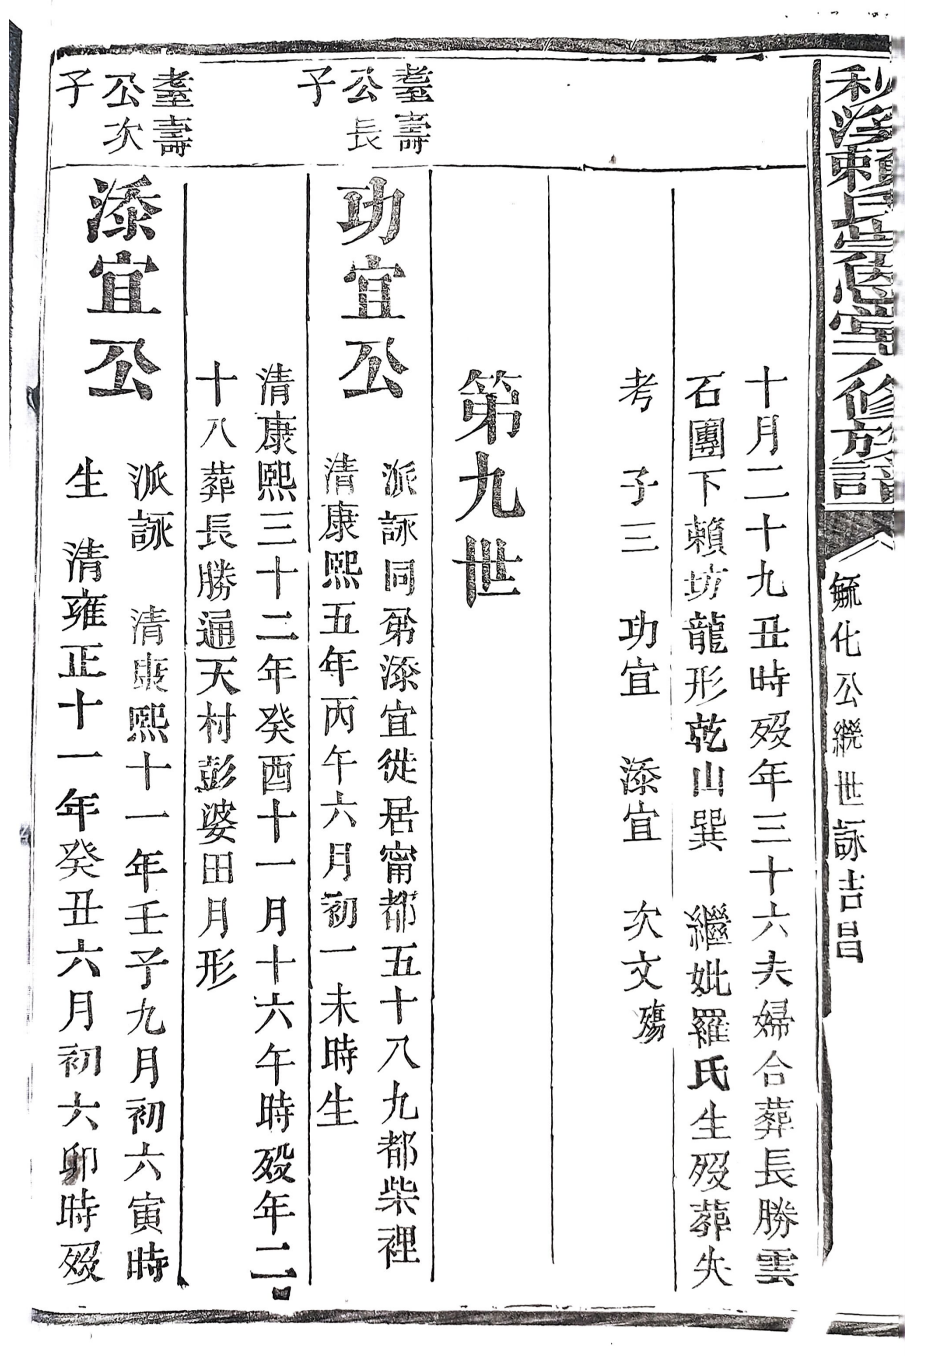 利 賴氏崇恩堂 修族譜
毓化公總世 詠吉昌
十月二十九丑時歿年三十六夫婦合葬長勝雲
石團下賴坊龍形乾山巽 繼妣羅氏生歿葬失
考 子三 功宜 添宜 次文殤
第九世
耋壽公長子
功宜公 派詠同弟添宜徙居甯都五十八九都柴裡
清康熙五年丙午六月初一未時生
清康熙三十二年癸酉十一月十六午時歿年二
十八葬長勝通天村彭婆田月形
耋壽公次子
添宜公 派詠 清康熙十一年壬子九月初六寅時
生 清雍正十一年癸丑六月初六卯時歿